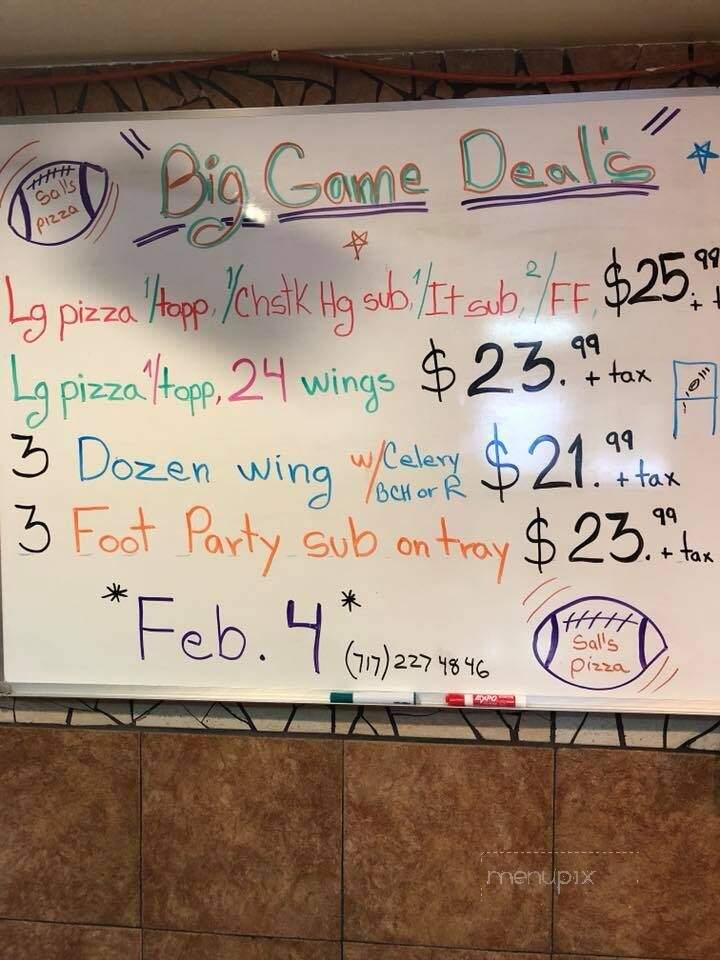 Sal's
pizza
"Big Game Deal's"
Lg pizza 1/topp, 1/Chstk Hg sub, 1/It sub, 2/FF, $25.99 +
Lg pizza 1/topp, 24 wings $23.99 + tax
3 Dozen wing w/Celery BCH or R $21.99 + tax
3 Foot Party sub on tray $23.99 + tax
*Feb. 4* (717) 227 4846
Sal's
pizza
EXPO
menupix